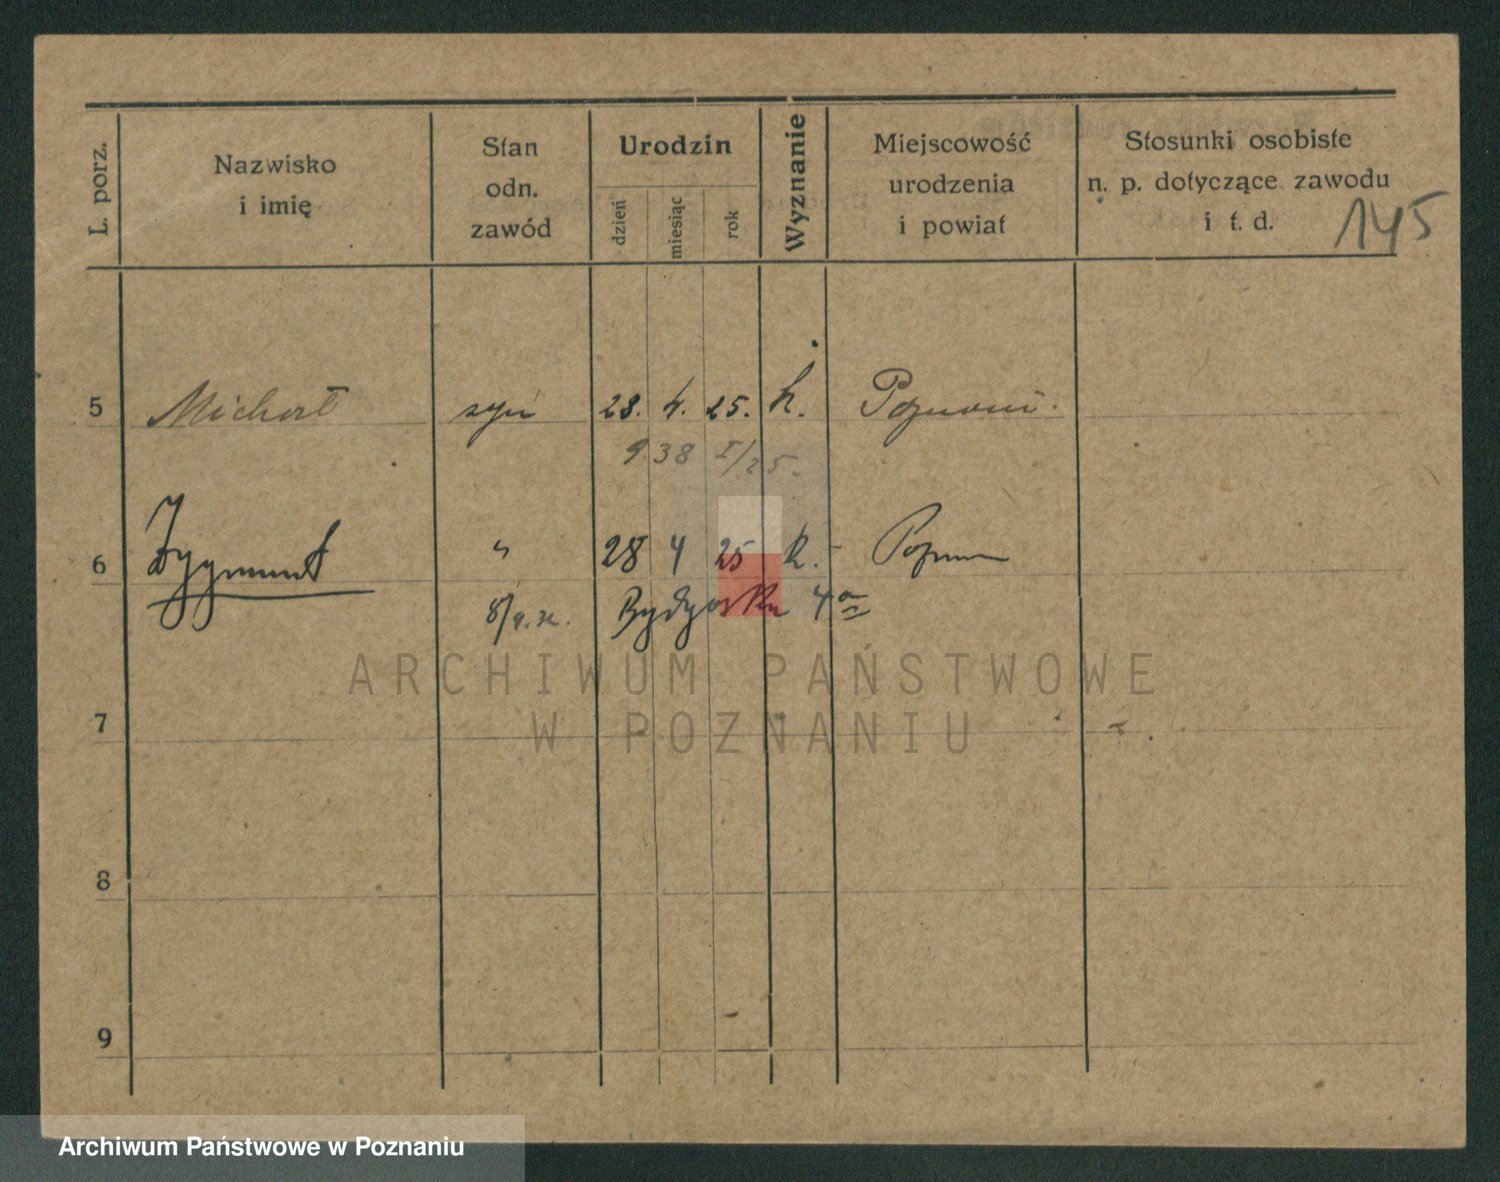 L. porz.
Nazwisko
i imię
Stan
odn.
zawód
Urodzin
dzień
miesiąc
rok
Wyznanie
Miejscowość
urodzenia
i powiat
Stosunki osobiste
n. p. dotyczące zawodu
i t. d.
145
5 Michał syn 28. 4. 25. k. Poznań.
938 I/25.
6 Zygmunt " 28 4 25 k. Poznań
Bydgoska 4a
ARCHIWUM PAŃSTWOWE
W POZNANIU
7
8
9
Archiwum Państwowe w Poznaniu